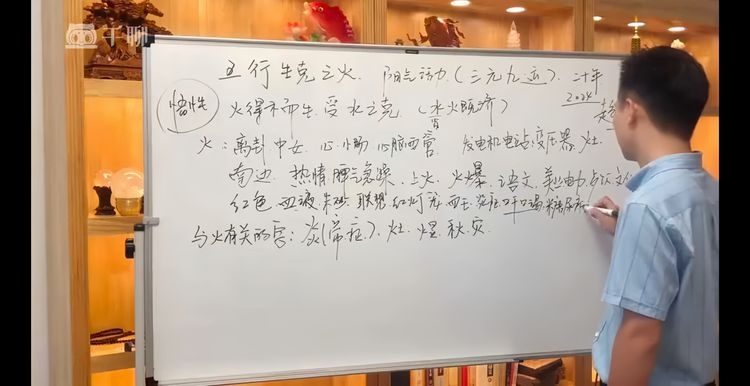 千聊
五行生克之火. 阳气活力.(三元九运). 二十年
2024
悟性
火得木而生.受水之克.(水火既济)
火:离卦 中女. 心.小肠.心脑血管 发电机电站.变压器.灶.
南边.热情 脾气急燥.上火.火爆.语文.美业电力.
红色.血液 朱砂.联想 红灯 口渴.糖尿病
与火有关的字:炎(常症).灶.煋.秋.灾.